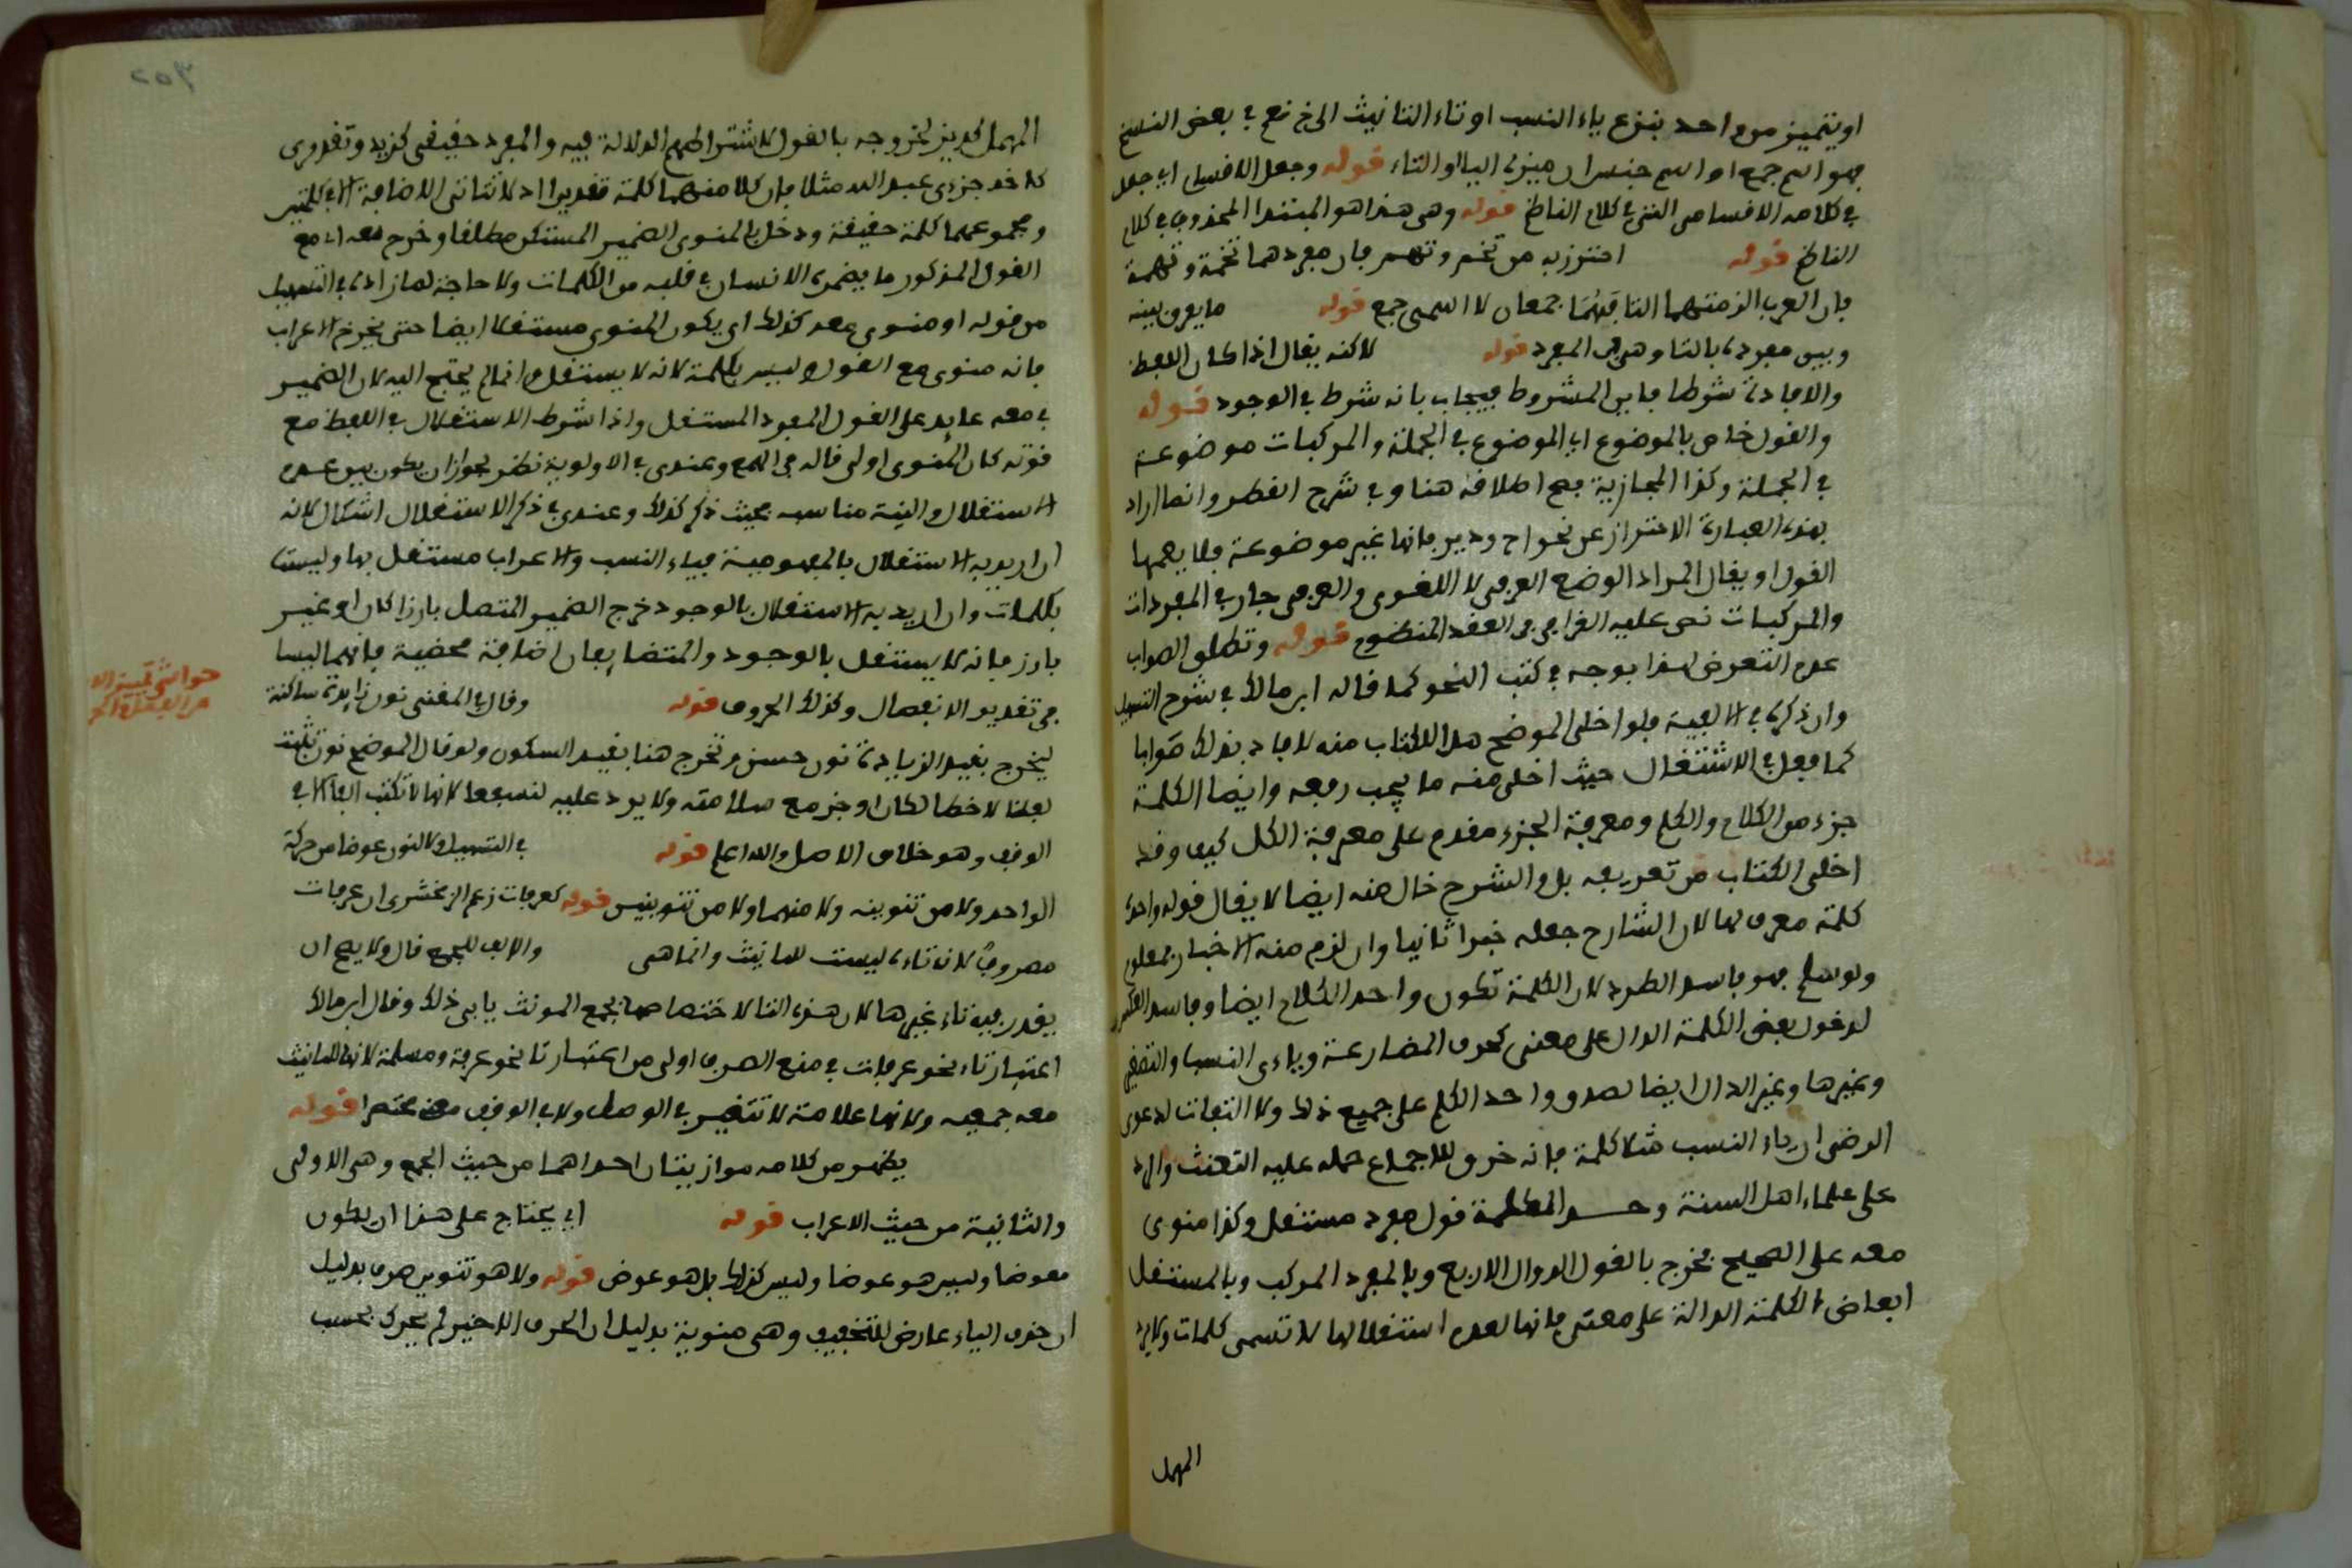 او يتميز من واحد بنزع ياء النسب او تاء التانيث الى خ نعم في بعض النسخ
فهو اسم جمع او اسم جنس ان ميزه اليا او التاء قوله وجعل الاقسام اي جعل
في كلامه الاقسام التي في كلام الناظم قوله وهي هذا هو المبتدا المحذوف في كلام
الناظم قوله احترز به من تخم وتهم فان مفردهما تخمة وتهمة
فان العرب الزمتهما التانيث جمعان لا اسمى جمع قوله ما يفرق بينه
وبين مفرده بالتا وهي في المفرد قوله لاكنه يقال اذا كان اللفظ
والافادة شرطا فاين المشروط فيجاب بانه شرط في الوجود قوله
والقول خاص بالموضوع اي الموضوع في الجملة والمركبات موضوعة
في الجملة وكذا المجازية فصح اطلاقه هنا وفي شرح القطر وانما اراد
بهذه العبارة الاحتراز عن نحو اح ودير فانها غير موضوعة فلا يعمها
القول او يقال المراد الوضع العرفي لا اللغوي والعرفي جار في المفردات
والمركبات نص عليه القرافي في العقد المنظوم قوله وتطلق الصواب
عدم التعرض لهذا بوجه في كتب النحو كما قاله ابن مالك في شرح التسهيل
وان ذكره في الالفية فلو اخلى الموضح هذا الكتاب منه لافاد بذلك صوابا
كما فعل في الاشتغال حيث اخلى منه ما يجب رفعه وايضا الكلمة
جزء من الكلام والكلم ومعرفة الجزء مقدم على معرفة الكل كيف وقد
اخلى الكتاب من تعريفه بل والشرح خال منه ايضا لا يقال قوله واحده
كلمة معرف لها لان الشارح جعله خبرا ثانيا وان لزم منه الاخبار بمعلوم
ولو سلم فهو فاسد الطرد لان الكلمة تكون واحد الكلام ايضا وفاسد العكس
لدخول بعض الكلمة الدال على معنى كحرف المضارعة وياءي النسب والتصغير
وغيرها وغير الدال ايضا لصدق واحد الكلم على جميع ذلك ولا التفات لدعوى
الرضى ان ياء النسب مثلا كلمة فانه خرق للاجماع حمله عليه التعنت والرد
على علماء اهل السنة وحد الكلمة قول مفرد مستقل وكذا منوى
معه على الصحيح فخرج بالقول الدوال الاربع وبالمفرد المركب وبالمستقل
ابعاض الكلمة الدالة على معنى فانها لعدم استقلالها لا تسمى كلمات ولا يرد
المهمل
المهمل كديز لخروجه بالقول لاشتراطهم الدلالة فيه والمفرد حقيقي كزيد وتقديري
كاحد جزءي عبد الله مثلا فان كلا منهما كلمة تقديرا اذ لا تتاتى الاضافة الا في كلمتين
ومجموعهما كلمة حقيقة ودخل بالمنوى الضمير المستكن مطلقا وخرج بمعه اي مع
القول المذكور ما يضمره الانسان في قلبه من الكلمات ولا حاجة لما زاده في التسهيل
من قوله او منوي معه كذلك اي يكون المنوى مستقلا ايضا حتى يخرج الاعراب
فانه منوى مع القول وليس بكلمة لانه لا يستقل وانما لم يحتج اليه لان الضمير
في معه عايد على القول المفرد المستقل واذا شرط الاستقلال في اللفظ مع
قوته كان المنوى اولى قاله في الهمع وعندي في الاولوية نظر لجواز ان يكون بين عدم
الاستقلال والنية مناسبة بحيث ذكر كذلك وعندي في ذكر الاستقلال اشكال لانه
ان اريد به الاستقلال بالمفهومية فياء النسب والاعراب مستقل بها وليستا
بكلمات وان اريد به الاستقلال بالوجود خرج الضمير المتصل بارزا كان او غير
بارز فانه لا يستقل بالوجود والمتضايفان اضافة محضية فانهما ليسا
في تقدير الانفصال وكذلك الحروف قوله وقال في المغنى نون زايدة ساكنة
ليخرج بقيد الزيادة نون حسن وتخرج هنا بقيد السكون ولو قال الموضح نون تثبت
لفظا لا خطا لكان اوجز مع سلامته ولا يرد عليه لنسفعا لانها لا تكتب الفا الا في
الوقف وهو خلاف الاصل والله اعلم قوله في التسهيل والنون عوضا من حركة
الواحد ولا من تنوينه ولا منهما ولا من تنوينين قوله كعرفات زعم الزمخشري ان عرفات
مصروف لانه تاءه ليست للتانيث وانما هي والالف للجمع قال ولا يصح ان
يقدر فيه تاء غيرها لان هذه التا لاختصاصها بجمع المونث يابى ذلك وقال ابن مالك
اعتبار تاء نحو عرفات في منع الصرف اولى من اعتبار تا نحو عرفة ومسلمة لانها للتانيث
معه جمعيه ولانها علامة لا تتغير في الوصل ولا في الوقف مختصرا قوله
يظهر من كلامه موازيتان احداهما من حيث الجمع وهي الاولى
والثانية من حيث الاعراب قوله اي يحتاج على هذا ان يكون
معوضا وليس هو عوضا وليس كذلك بل هو عوض قوله ولا هو تنوين صرف بدليل
ان حذف الياء عارض للتخفيف وهي منوية بدليل ان الحرف الاخير لم يحرك بحسب